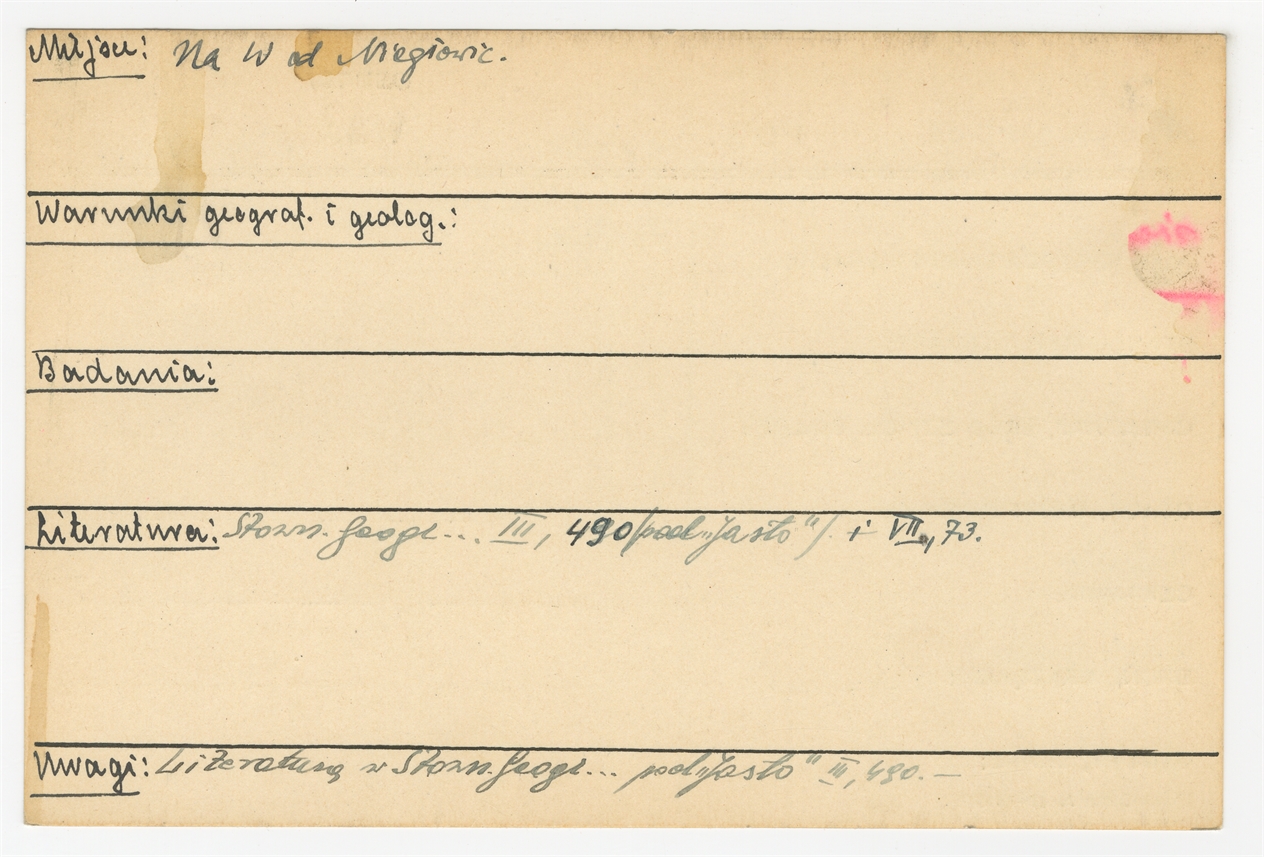 Miejsce: Na W od Niegłowic.
Warunki geograf. i geolog.:
Badania:
Literatura: Słown. Geogr... III, 490 /pod „Jasło"/. i VII, 73.
Uwagi: Literatura w Słown. Geogr... pod „Jasło" III, 490. —